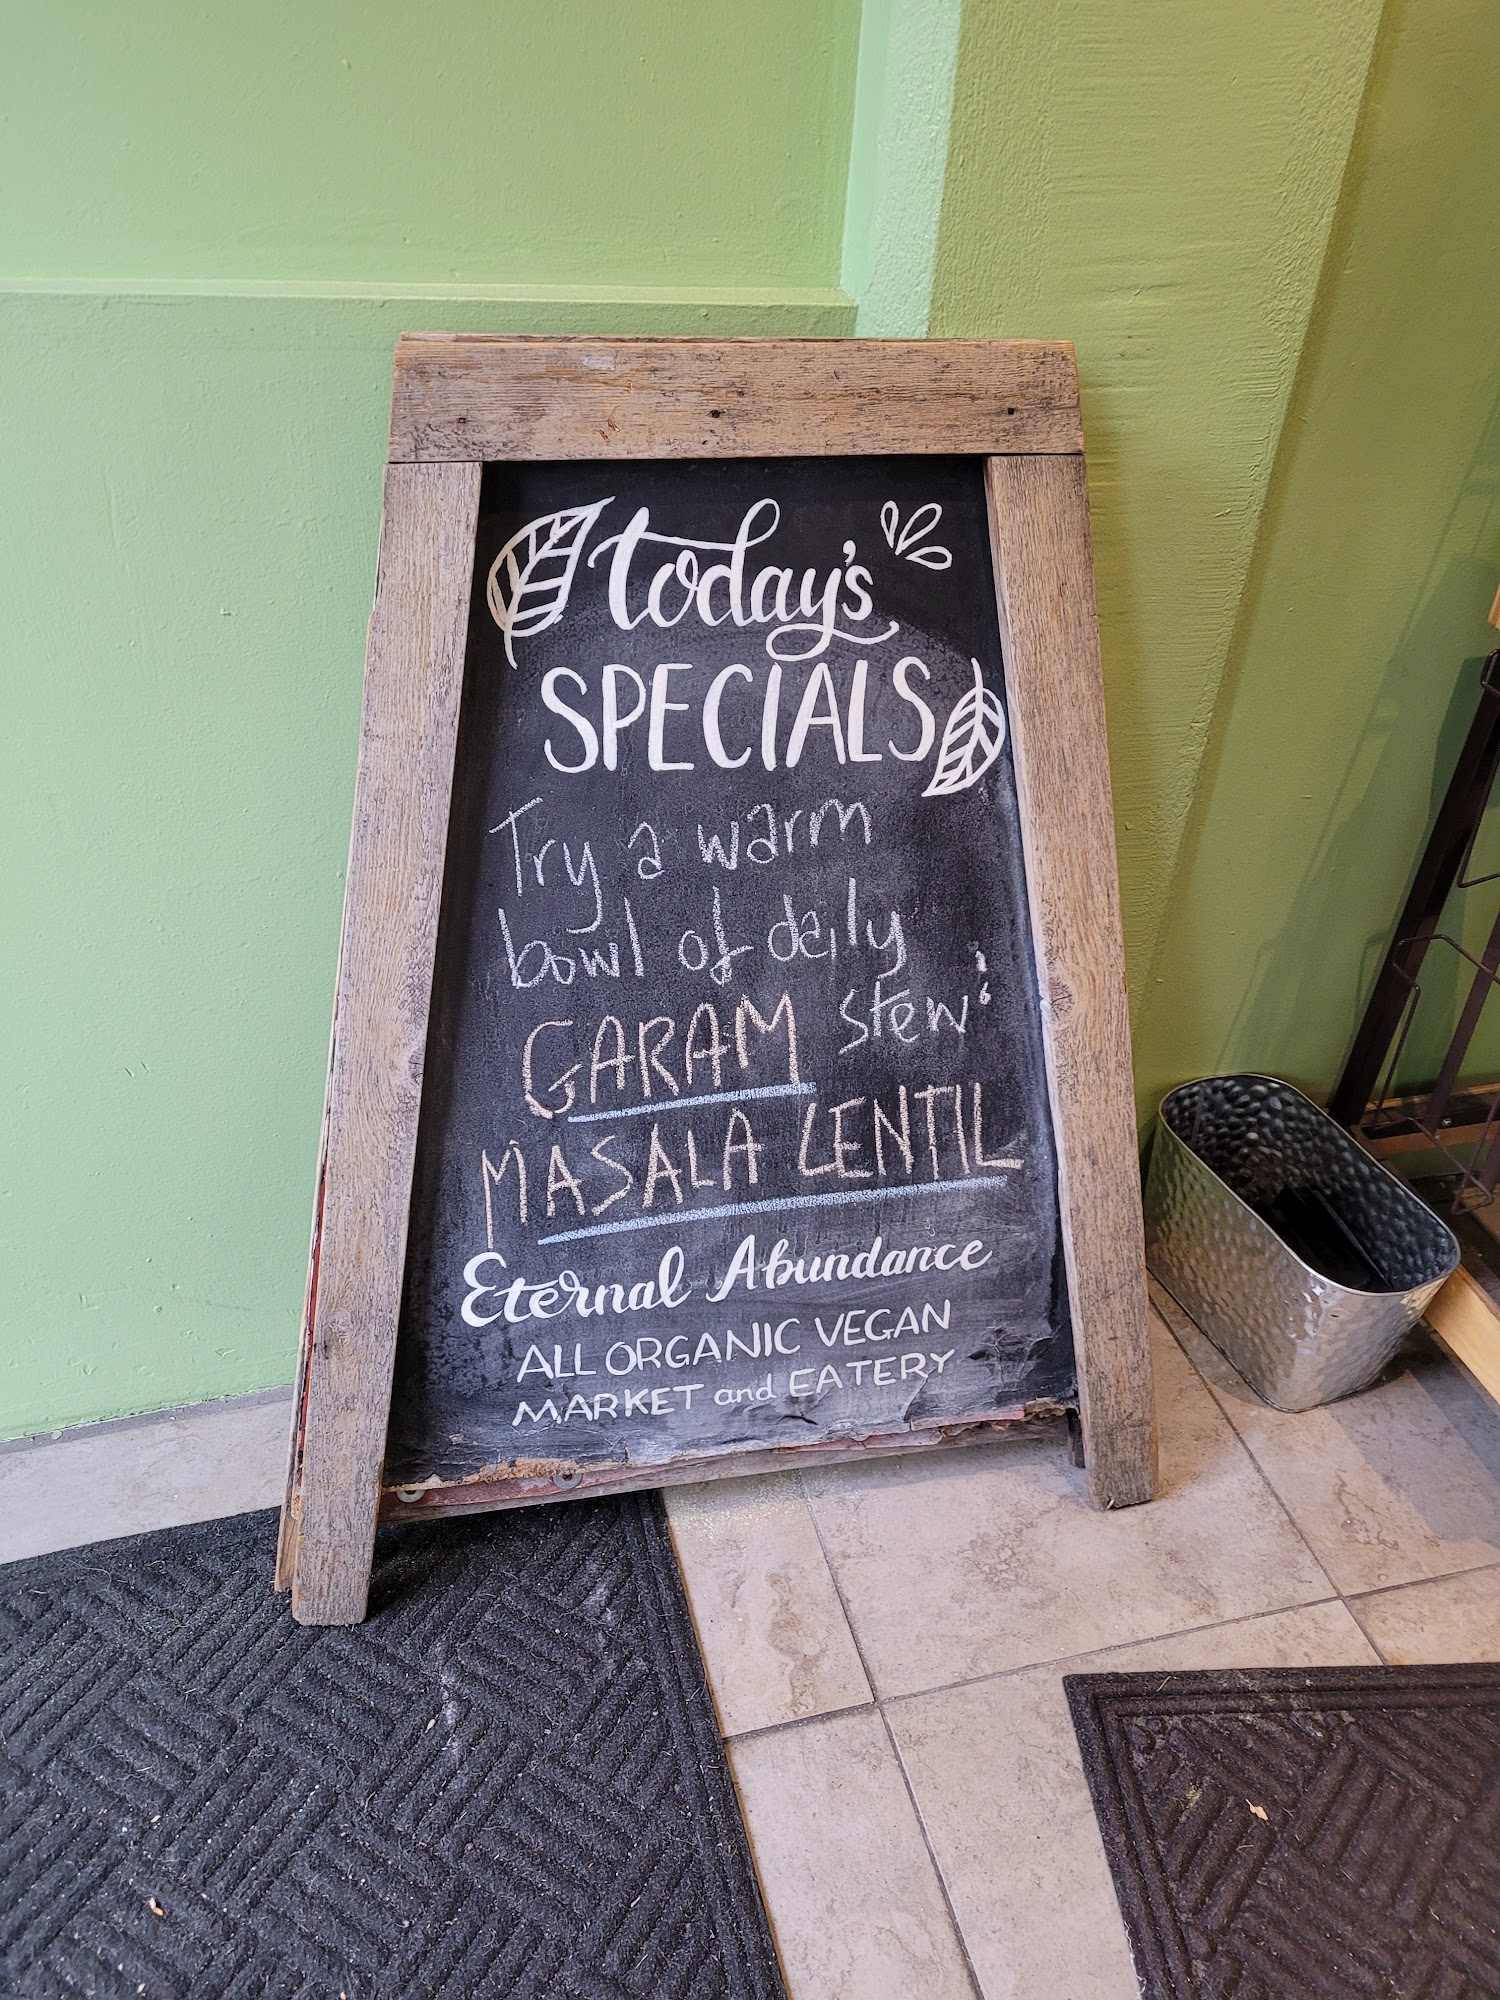 today's
SPECIALS
Try a warm
bowl of daily
stew:
GARAM
MASALA LENTIL
Eternal Abundance
ALL ORGANIC VEGAN
MARKET and EATERY